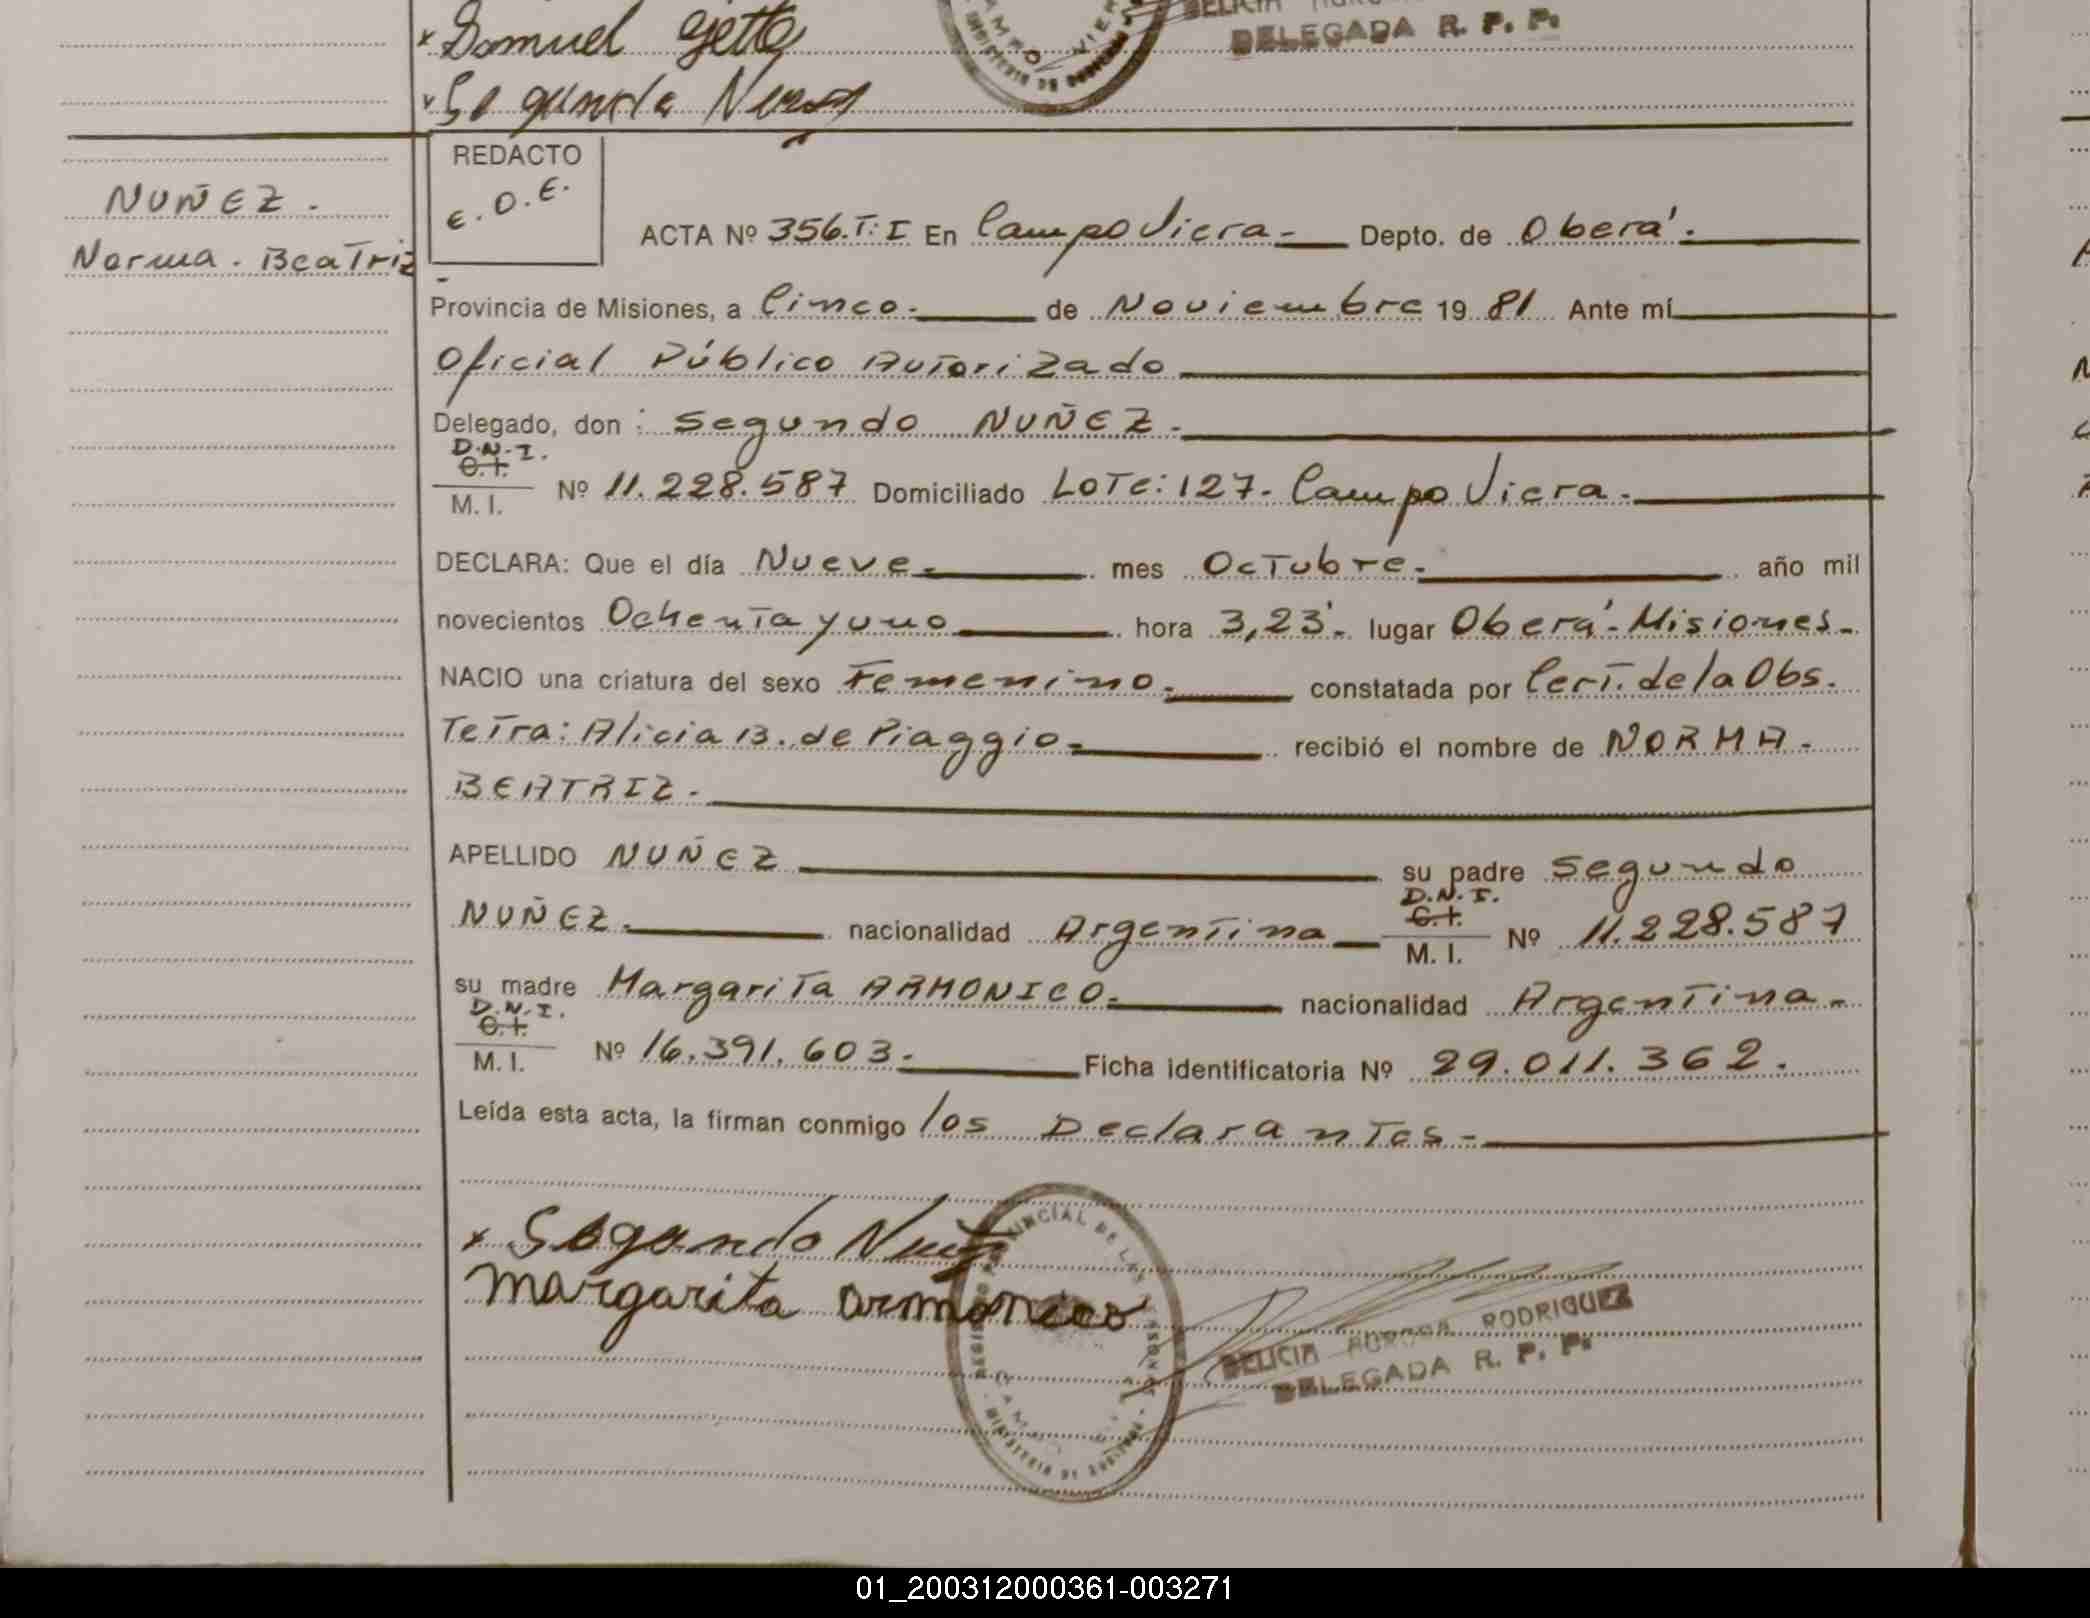 Samuel Gette
Segundo Nuñez
DELEGADA R. P. P.
NUÑEZ.
Norma. Beatriz
REDACTO
E.O.E.
ACTA Nº 356.T:I En Campo Viera- Depto. de Oberá.
Provincia de Misiones, a Cinco. de Noviembre 19 81 Ante mí
Oficial Público Autorizado
Delegado, don: Segundo NUÑEZ.
D.N.I.
C.I.
M. I. Nº 11.228.587 Domiciliado Lote: 127- Campo Viera.
DECLARA: Que el día Nueve. mes Octubre. año mil
novecientos Ochenta y uno hora 3,23'. lugar Oberá-Misiones-
NACIO una criatura del sexo Femenino. constatada por Cert. de la Obs.
Tetra: Alicia B. de Piaggio- recibió el nombre de NORMA.
BEATRIZ.
APELLIDO NUÑEZ su padre Segundo
NUÑEZ. nacionalidad Argentina D.N.I. C.I. M. I. Nº 11.228.587
su madre Margarita ARMONICO. nacionalidad Argentina-
D.N.I. C.I. M. I. Nº 16.391.603. Ficha identificatoria Nº 29.011.362.
Leída esta acta, la firman conmigo los Declarantes-
x Segundo Nuñez
Margarita armonico
DELICIA AURORA RODRIGUEZ
DELEGADA R. P. P.
01_200312000361-003271